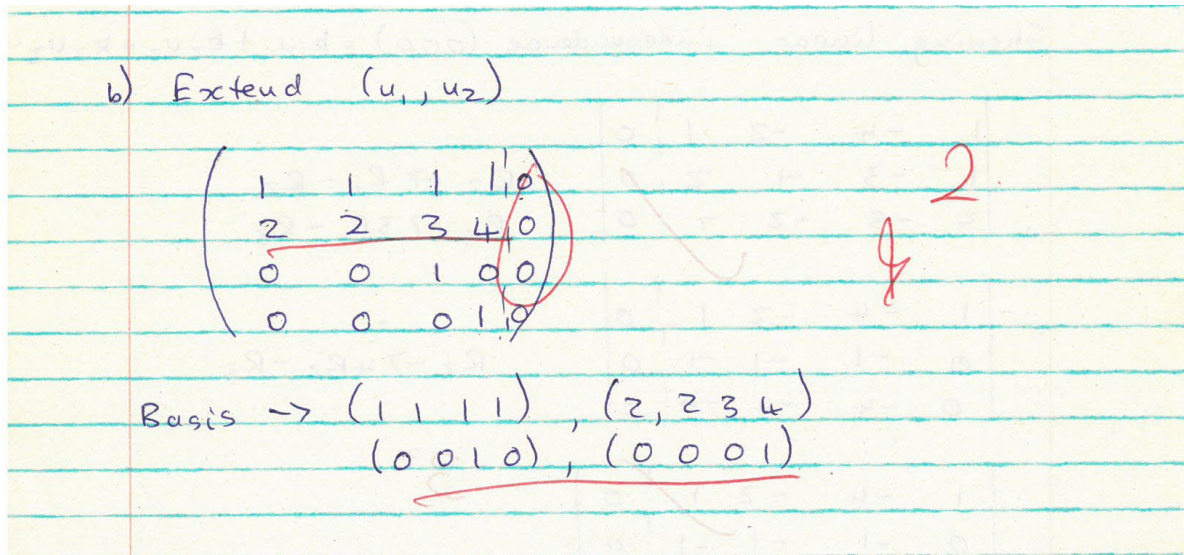 b) Extend (u₁, u₂)
1 1 1 1 0
2
2 2 3 4 0
0 0 1 0 0
0 0 0 1 0
Basis -> (1 1 1 1), (2, 2 3 4)
(0 0 1 0), (0 0 0 1)